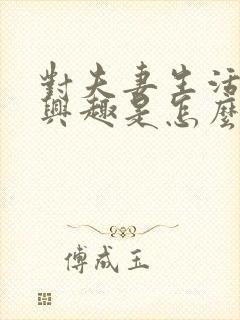 對夫妻生活
興趣是怎麼
傅成玉